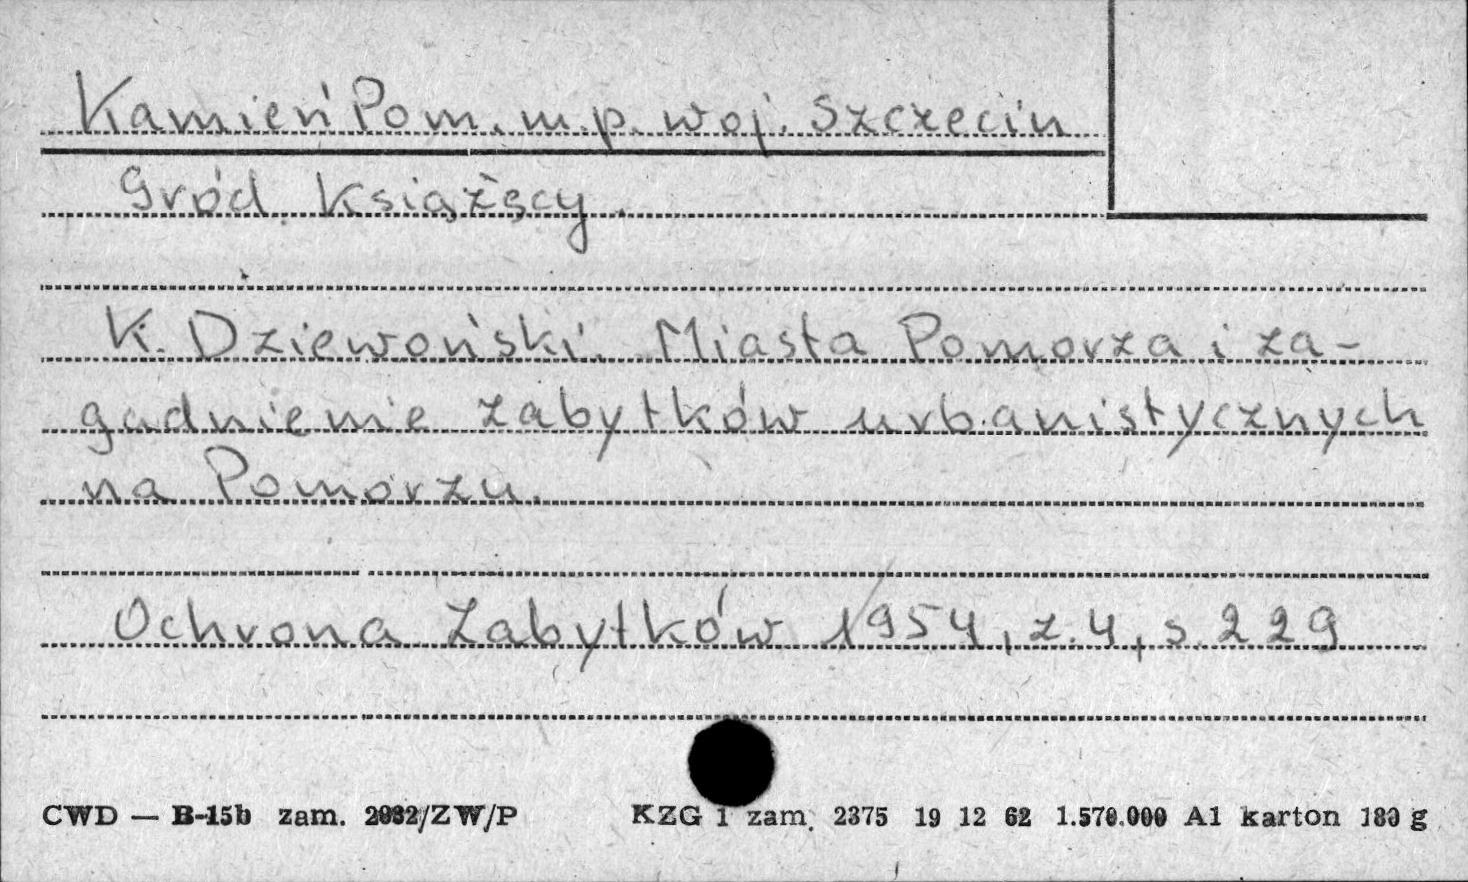 Kamień Pom. m.p. woj. Szczecin
Gród Książęcy.
K. Dziewoński. Miasta Pomorza i za-
gadnienie zabytków urbanistycznych
na Pomorzu.
Ochrona Zabytków 1954, z. 4, s. 229
CWD — B-15b zam. 2032/ZW/P KZG 1 zam. 2375 19 12 62 1.570.000 A1 karton 180 g